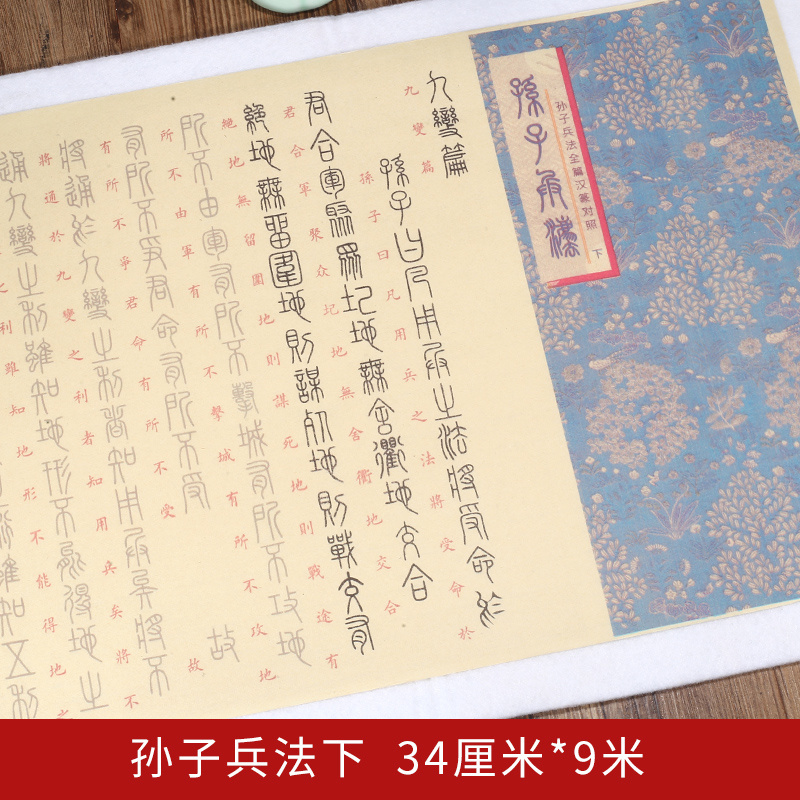 孫子兵法
孙子兵法全篇汉篆对照 下
九變篇
九變篇
孫子曰凡用兵之法將受命於
孫子曰凡用兵之法將受命於
君合軍聚眾圮地無舍衢地交合
君合軍聚众圮地無舍衢地交合
絕地無留圍地則謀死地則戰途有
絕地無留圍地則謀死地則戰途有
所不由軍有所不擊城有所不攻地
所不由軍有所不擊城有所不攻地
有所不爭君命有所不受 故
有所不爭君命有所不受 故
將通於九變之利者知用兵矣將不
將通於九變之利者知用兵矣將不
通九變之利雖知地形不能得地之
之利雖知地形不能得地之
雖知五利
孙子兵法下 34厘米*9米